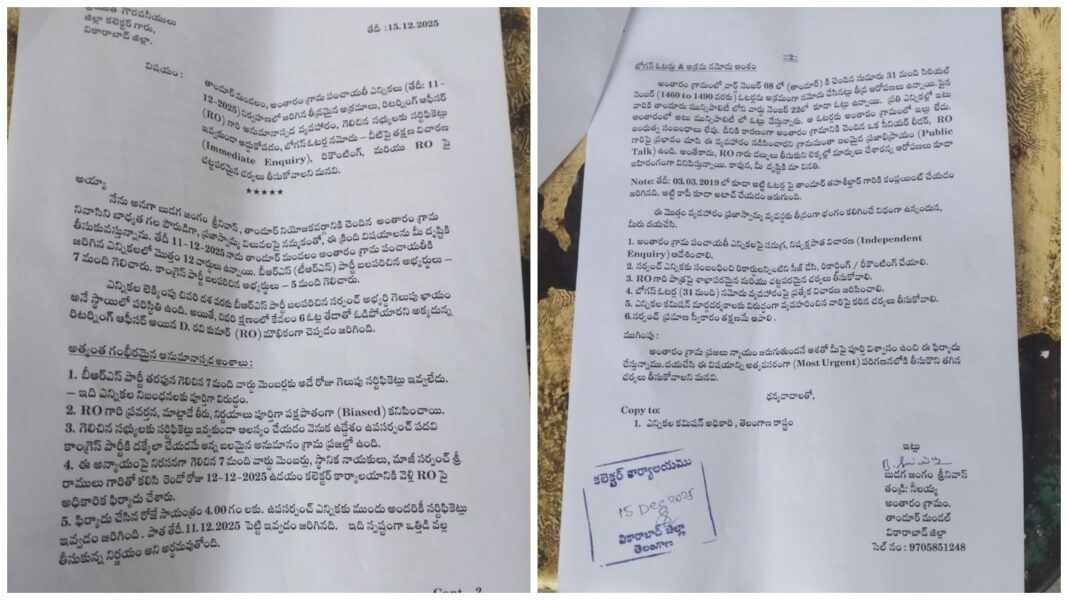 గౌరవనీయులు
జిల్లా కలెక్టర్ గారు,
వికారాబాద్ జిల్లా.
తేదీ :15.12.2025
విషయం :
తాండూర్ మండలం, అంతారం గ్రామ పంచాయతీ ఎన్నికలు (తేదీ: 11–
12–2025) నిర్వహణలో జరిగిన తీవ్రమైన అక్రమాలు, రిటర్నింగ్ ఆఫీసర్
(RO) గారి అనుమానాస్పద వ్యవహారం, గెలిచిన సభ్యులకు సర్టిఫికెట్లు
ఇవ్వకుండా అడ్డుకోవడం, బోగస్ ఓటర్ల నమోదు – వీటిపై తక్షణ విచారణ
(Immediate Enquiry), రికౌంటింగ్, మరియు RO పై
చట్టపరమైన చర్యలు తీసుకోవాలని మనవి.
*****
అయ్యా
నేను అనగా బుడగ జంగం శ్రీనివాస్, తాండూర్ నియోజకవర్గానికి చెందిన అంతారం గ్రామ
నివాసిని బాధ్యత గల పౌరుడిగా, ప్రజాస్వామ్య విలువలపై నమ్మకంతో, ఈ క్రింది విషయాలను మీ దృష్టికి
తీసుకువస్తున్నాను. తేదీ 11–12–2025 నాడు తాండూర్ మండలం అంతారం గ్రామ పంచాయతీకి
జరిగిన ఎన్నికలలో మొత్తం 12 వార్డులు ఉన్నాయి. బీఆర్ఎస్ (టీఆర్ఎస్) పార్టీ బలపరిచిన అభ్యర్థులు –
7 మంది గెలిచారు. కాంగ్రెస్ పార్టీ బలపరిచిన అభ్యర్థులు – 5 మంది గెలిచారు.
ఎన్నికల లెక్కింపు చివరి దశ వరకు బీఆర్ఎస్ పార్టీ బలపరిచిన సర్పంచ్ అభ్యర్థి గెలుపు ఖాయం
అనే స్థాయిలో పరిస్థితి ఉంది. అయితే, చివరి క్షణంలో కేవలం 6 ఓట్ల తేడాతో ఓడిపోయారని అక్కడున్న
రిటర్నింగ్ ఆఫీసర్ అయిన D. రవి కుమార్ (RO) మౌఖికంగా చెప్పడం జరిగింది.
అత్యంత గంభీరమైన అనుమానాస్పద అంశాలు :
1. బీఆర్ఎస్ పార్టీ తరఫున గెలిచిన 7 మంది వార్డు మెంబర్లకు అదే రోజు గెలుపు సర్టిఫికెట్లు ఇవ్వలేదు.
– ఇది ఎన్నికల నిబంధనలకు పూర్తిగా విరుద్ధం.
2. RO గారి ప్రవర్తన, మాట్లాడే తీరు, నిర్ణయాలు పూర్తిగా పక్షపాతంగా (Biased) కనిపించాయి.
3. గెలిచిన సభ్యులకు సర్టిఫికెట్లు ఇవ్వకుండా ఆలస్యం చేయడం వెనుక ఉద్దేశం ఉపసర్పంచ్ పదవి
కాంగ్రెస్ పార్టీకి దక్కేలా చేయడమే అన్న బలమైన అనుమానం గ్రామ ప్రజల్లో ఉంది.
4. ఈ అన్యాయంపై నిరసనగా గెలిచిన 7 మంది వార్డు మెంబర్లు, స్థానిక నాయకులు, మాజీ సర్పంచ్ శ్రీ
రాములు గారితో కలిసి రెండో రోజు 12–12–2025 ఉదయం కలెక్టర్ కార్యాలయానికి వెళ్లి RO పై
అధికారిక ఫిర్యాదు చేశారు.
5. ఫిర్యాదు చేసిన రోజే సాయంత్రం 4.00 గం లకు. ఉపసర్పంచ్ ఎన్నికకు ముందు అందరికీ సర్టిఫికెట్లు
ఇవ్వడం జరిగింది . పాత తేదీ.11.12.2025 పెట్టి ఇవ్వడం జరిగినది. ఇది స్పష్టంగా ఒత్తిడి వల్ల
తీసుకున్న నిర్ణయం అని అర్థమవుతోంది.
Cont...2
::2::
బోగస్ ఓటర్లు & అక్రమ నమోదు అంశం
అంతారం గ్రామంలో వార్డ్ నెంబర్ 08 లో (తాండూర్) కి చెందిన సుమారు 31 మంది సీరియల్
నెంబర్ (1460 to 1490 వరకు) ఓటర్లను అక్రమంగా నమోదు చేసినట్లు తీవ్ర ఆరోపణలు ఉన్నాయి.పైన
వారికి తాండూరు మున్సిపాలిటీ లోని వార్డు నెంబర్ 22లో కూడా ఓట్లు ఉన్నాయి. ప్రతి ఎన్నికల్లో ఇటు
అంతారంలో అటు మున్సిపాలిటీ లో ఓట్లు వేస్తున్నారు. ఆ ఓటర్లకు అంతారం గ్రామంలో ఇల్లు లేదు.
బంధుత్వ సంబంధాలు లేవు. దీనికి కారణంగా అంతారం గ్రామానికి చెందిన ఒక సీనియర్ లీడర్, RO
గారిపై ప్రభావం చూపి ఈ వ్యవహారం నడిపించారని గ్రామమంతా బలమైన ప్రజాభిప్రాయం (Public
Talk) ఉంది. అంతేకాదు, RO గారు డబ్బులు తీసుకుని లెక్కల్లో మార్పులు చేశారన్న ఆరోపణలు కూడా
బహిరంగంగా వినిపిస్తున్నాయి. కావున, మీ దృష్టికి మా వినతి.
Note: తేదీ: 03.03.2019 లో కూడా అట్టి ఓటర్ల పై తాండూర్ తహశీల్దార్ గారికి కంప్లయింట్ చేయడం
జరిగినది. అట్టి కాపీ కూడా అటాచ్ చేయడం జరుగుంది.
ఈ మొత్తం వ్యవహారం ప్రజాస్వామ్య వ్యవస్థకు తీవ్రంగా భంగం కలిగించే విధంగా ఉన్నందున,
మీరు దయచేసి.
1. అంతారం గ్రామ పంచాయతీ ఎన్నికలపై సమగ్ర, నిష్పక్షపాత విచారణ (Independent
Enquiry) ఆదేశించాలి.
2. సర్పంచ్ ఎన్నికకు సంబంధించి రికార్డులన్నింటిని సీజ్ చేసి, రికారింగ్ / రీకౌంటింగ్ చేయాలి.
3. RO గారి పాత్రపై శాఖాపరమైన మరియు చట్టపరమైన చర్యలు తీసుకోవాలి.
4. బోగస్ ఓటర్ల (31 మంది) నమోదు వ్యవహారంపై ప్రత్యేక విచారణ జరిపించాలి.
5. ఎన్నికల కమిషన్ మార్గదర్శకాలకు విరుద్ధంగా వ్యవహరించిన వారిపై కఠిన చర్యలు తీసుకోవాలి.
6.సర్పంచ్ ప్రమాణ స్వీకారం తక్షణమే ఆపాలి .
ముగింపు:
అంతారం గ్రామ ప్రజలు న్యాయం జరుగుతుందనే ఆశతో మీపై పూర్తి విశ్వాసం ఉంచి ఈ ఫిర్యాదు
చేస్తున్నాము.దయచేసి ఈ విషయాన్ని అత్యవసరంగా (Most Urgent) పరిగణనలోకి తీసుకొని తగిన
చర్యలు తీసుకోవాలని మనవి.
ధన్యవాదాలతో,
Copy to:
1. ఎన్నికల కమిషన్ అధికారి , తెలంగాణ రాష్ట్రం
ఇట్లు
బుడగ జంగం శ్రీనివాస్
తండ్రి: నీలయ్య
అంతారం గ్రామం.
తాండూర్ మండల్
వికారాబాద్ జిల్లా
సెల్ నం : 9705851248
కలెక్టర్ కార్యాలయము
15 Dec 2025
వికారాబాద్ జిల్లా
తెలంగాణ